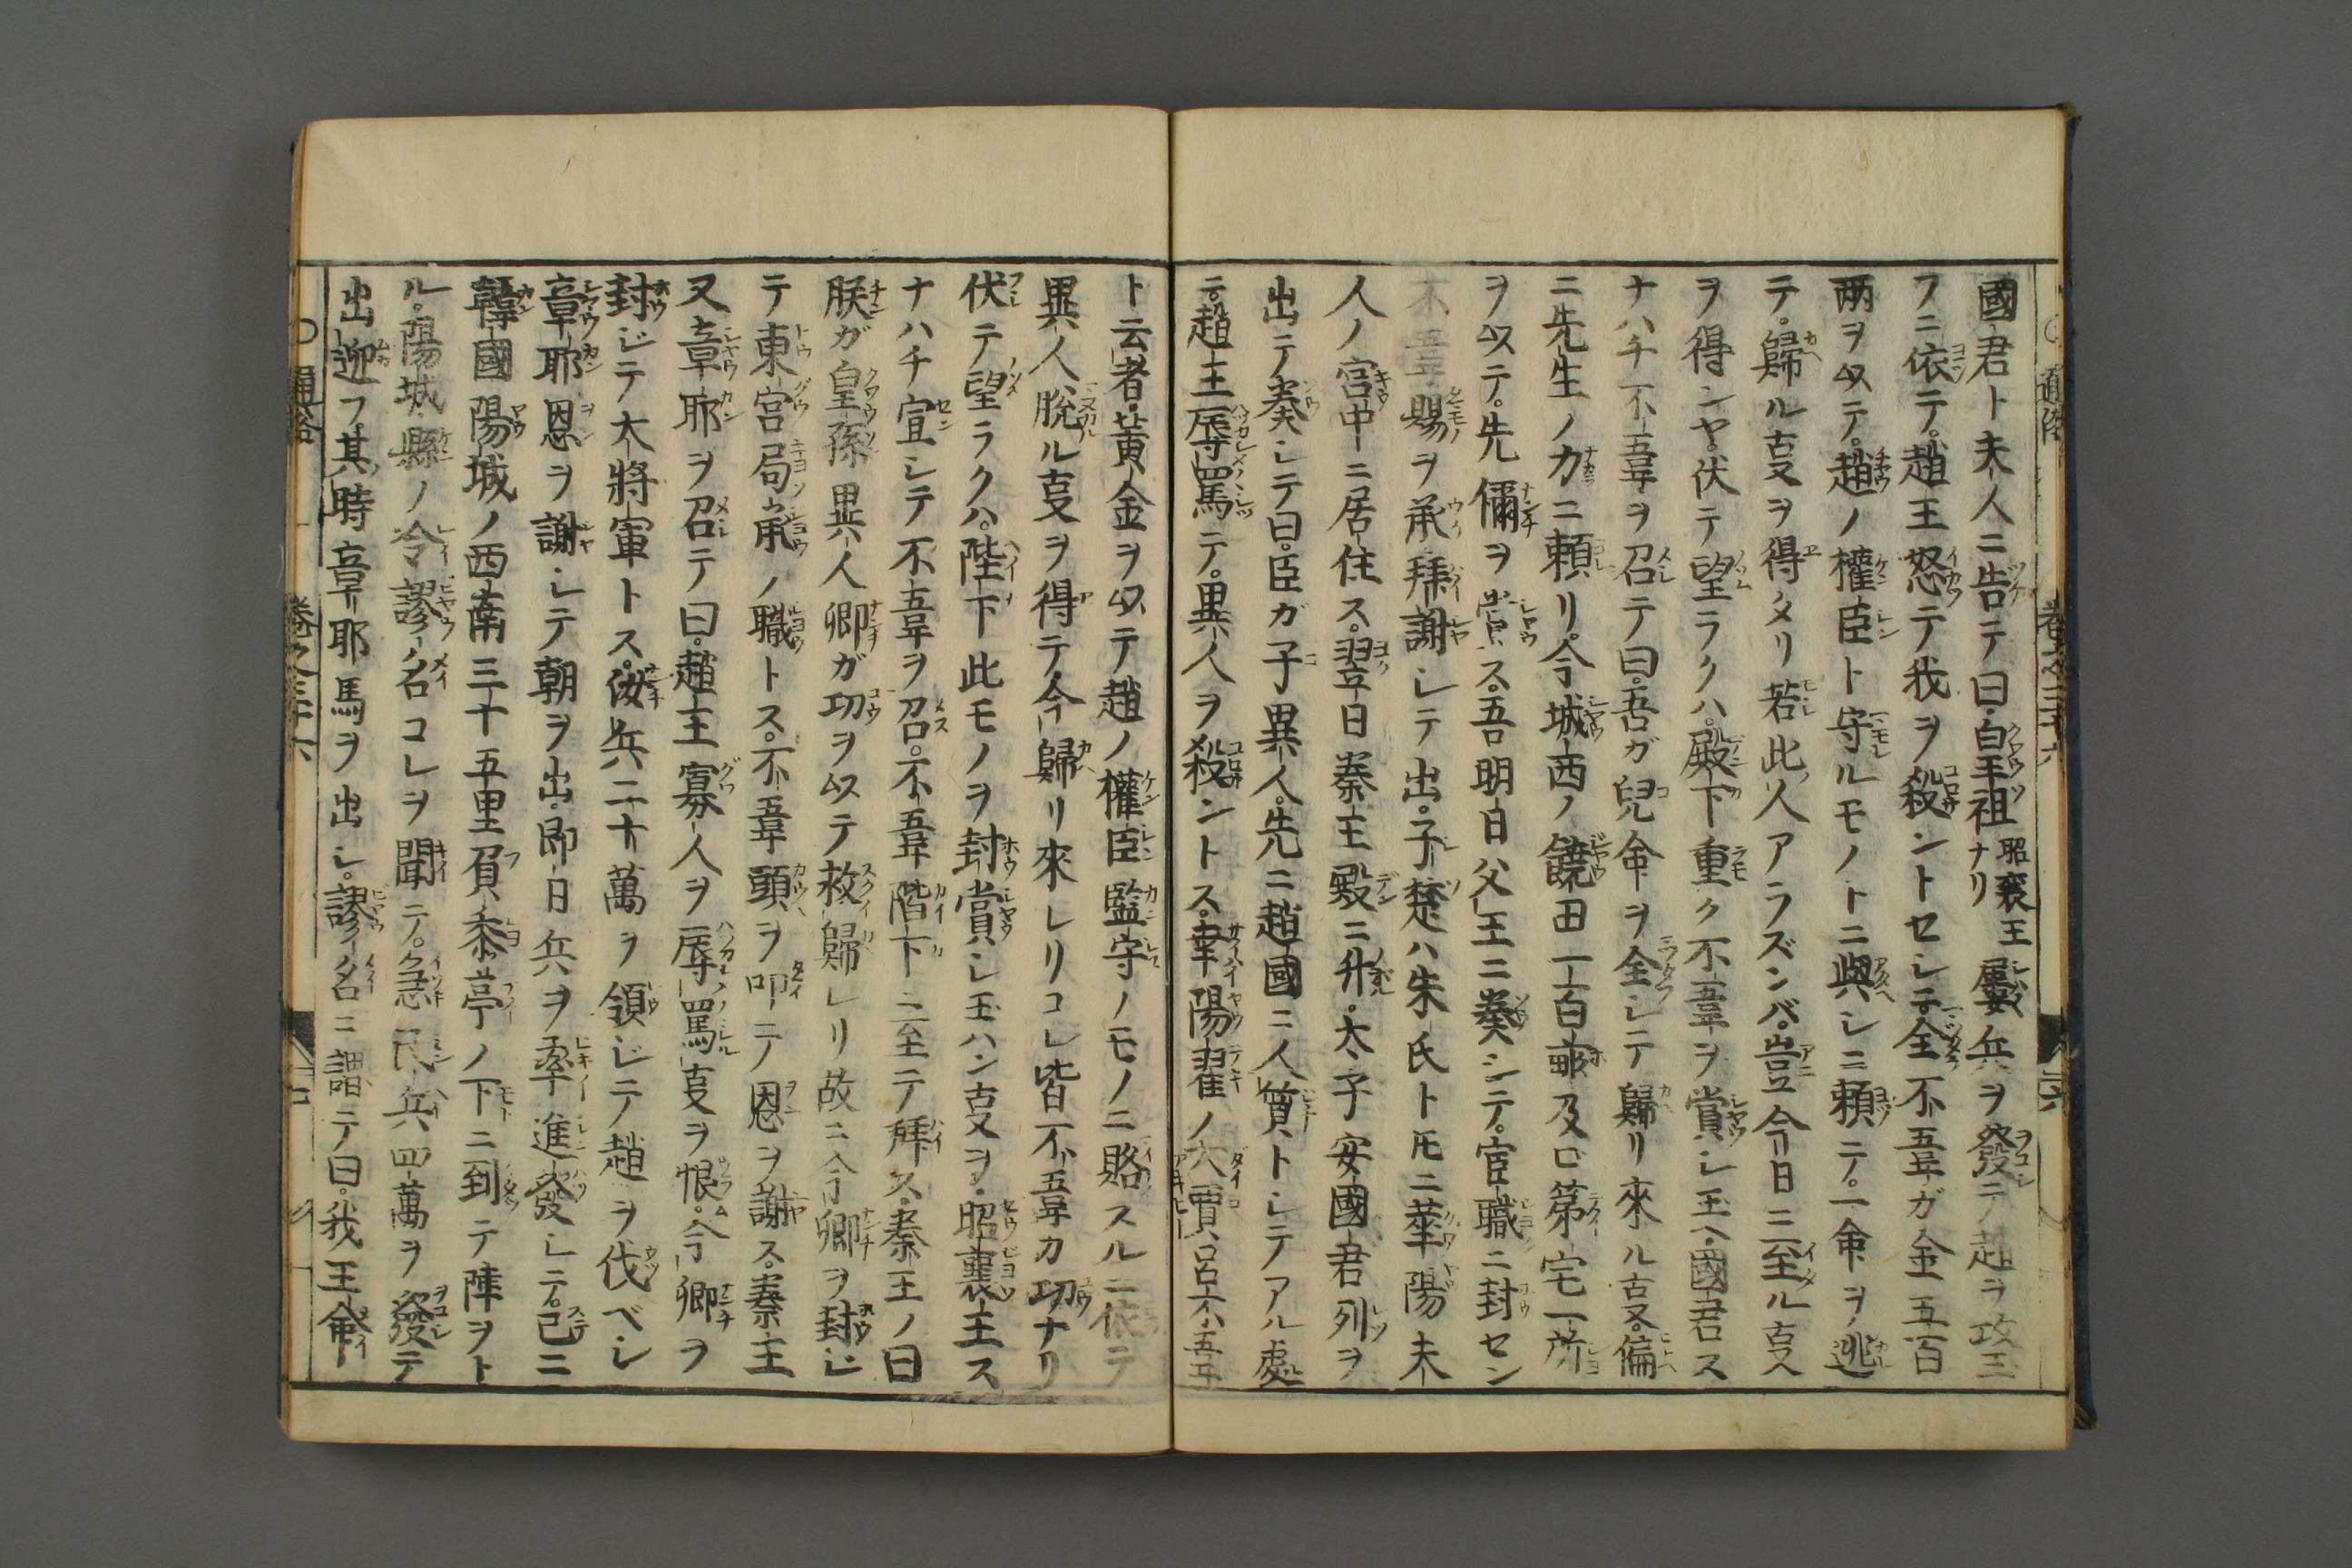 國君ト夫人ニ告テ曰皇祖昭襄王ナリ屢兵ヲ發シテ趙ヲ攻玉
フニ依テ。趙王怒テ我ヲ殺ントセシヲ。全不韋ガ金五百
兩ヲ以テ。趙ノ權臣ト守ルモノトニ與シニ頼テ。一命ヲ逃
テ。歸ル事ヲ得タリ若此人アラズンバ。豈今日ニ至ル事
ヲ得ンヤ。伏テ望ラクハ。殿下重ク不韋ヲ賞シ玉ヘ。國君ス
ナハチ不韋ヲ召テ曰。吾ガ兒命ヲ全シテ歸リ來ル事。偏
ニ先生ノ力ニ頼リ。今城西ノ饒田一百畝及ビ第宅一所
ヲ以テ。先儞ヲ賞ス。吾明日父王ニ奏シテ。官職ニ封セン
不韋賜ヲ承拜謝シテ出。子楚ハ朱氏トモニ華陽夫
人ノ宮中ニ居住ス。翌日秦王殿ニ升。太子安國君列ヲ
出テ奏シテ曰。臣ガ子異人。先ニ趙國ニ人質トシテアル處
ニ。趙王辱罵テ。異人ヲ殺ントス。幸陽翟ノ大賈呂不韋
ト云者。黃金ヲ以テ趙ノ權臣監守ノモノニ賂スルニ依テ
異人脫ル事ヲ得テ今歸リ來レリコレ皆不韋カ功ナリ
伏テ望ラクハ。陛下此モノヲ封賞シ玉ハン事ヲ。昭襄王ス
ナハチ宣シテ不韋ヲ召。不韋階下ニ至テ拜ス。秦王ノ曰
朕ガ皇孫異人卿ガ功ヲ以テ救歸レリ故ニ今卿ヲ封ジ
テ東宮局承ノ職トス。不韋頭ヲ叩ニテ恩ヲ謝ス。秦王
又章邯ヲ召テ曰。趙王寡人ヲ辱罵事ヲ恨。今卿ヲ
封ジテ大將軍トス。汝兵二十萬ヲ領ジテ趙ヲ伐ベシ
章邯恩ヲ謝シテ朝ヲ出。即日兵ヲ率進發シテ。已ニ
韓國陽城ノ西南三十五里負黍亭ノ下ニ到テ陣ヲト
ル。陽城縣ノ令謬名コレヲ聞テ。急民兵四萬ヲ發テ
出迎フ。其時章邯馬ヲ出シ。謬名ニ謂テ曰。我王命
通俗
卷之三十六